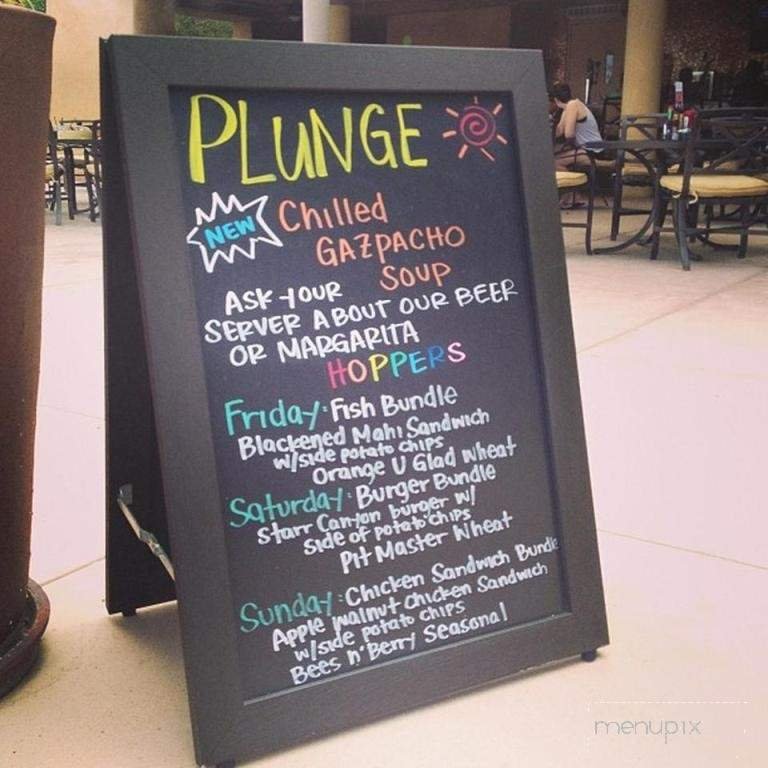 PLUNGE
NEW Chilled
GAZPACHO
SOUP
ASK YOUR
SERVER ABOUT OUR BEER
OR MARGARITA
HOPPERS
Friday: Fish Bundle
Blackened Mahi Sandwich
w/side potato chips
Orange U Glad Wheat
Saturday: Burger Bundle
Starr Canyon burger w/
side of potato chips
Pit Master Wheat
Sunday: Chicken Sandwich Bundle
Apple walnut Chicken Sandwich
w/side potato chips
Bees n' Berry Seasonal
menupix